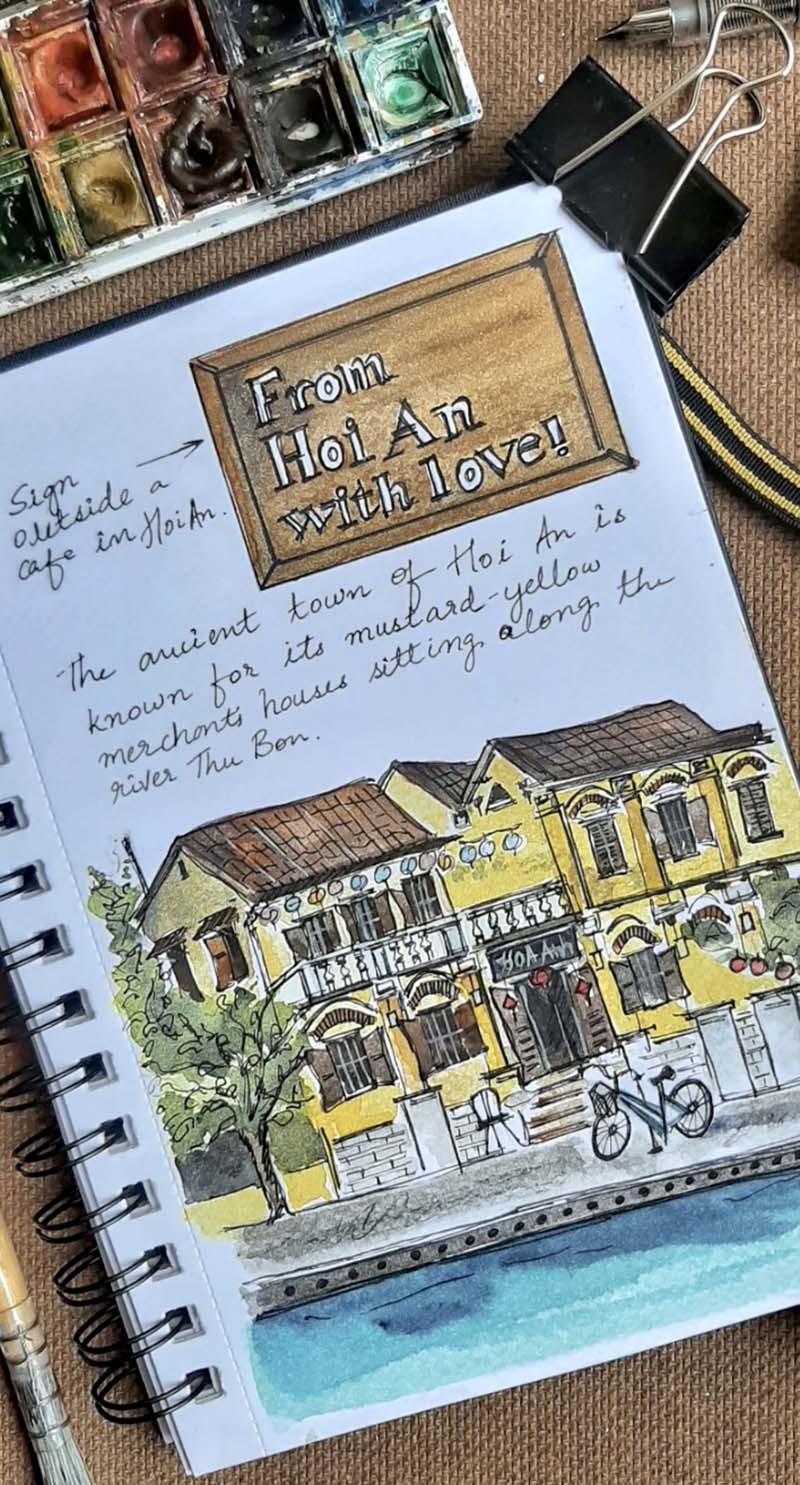 From
Hoi An
with love!
Sign
outside a
cafe in Hoi An.
The ancient town of Hoi An is
known for its mustard-yellow
merchants houses sitting along the
river Thu Bon.
HOA ANH